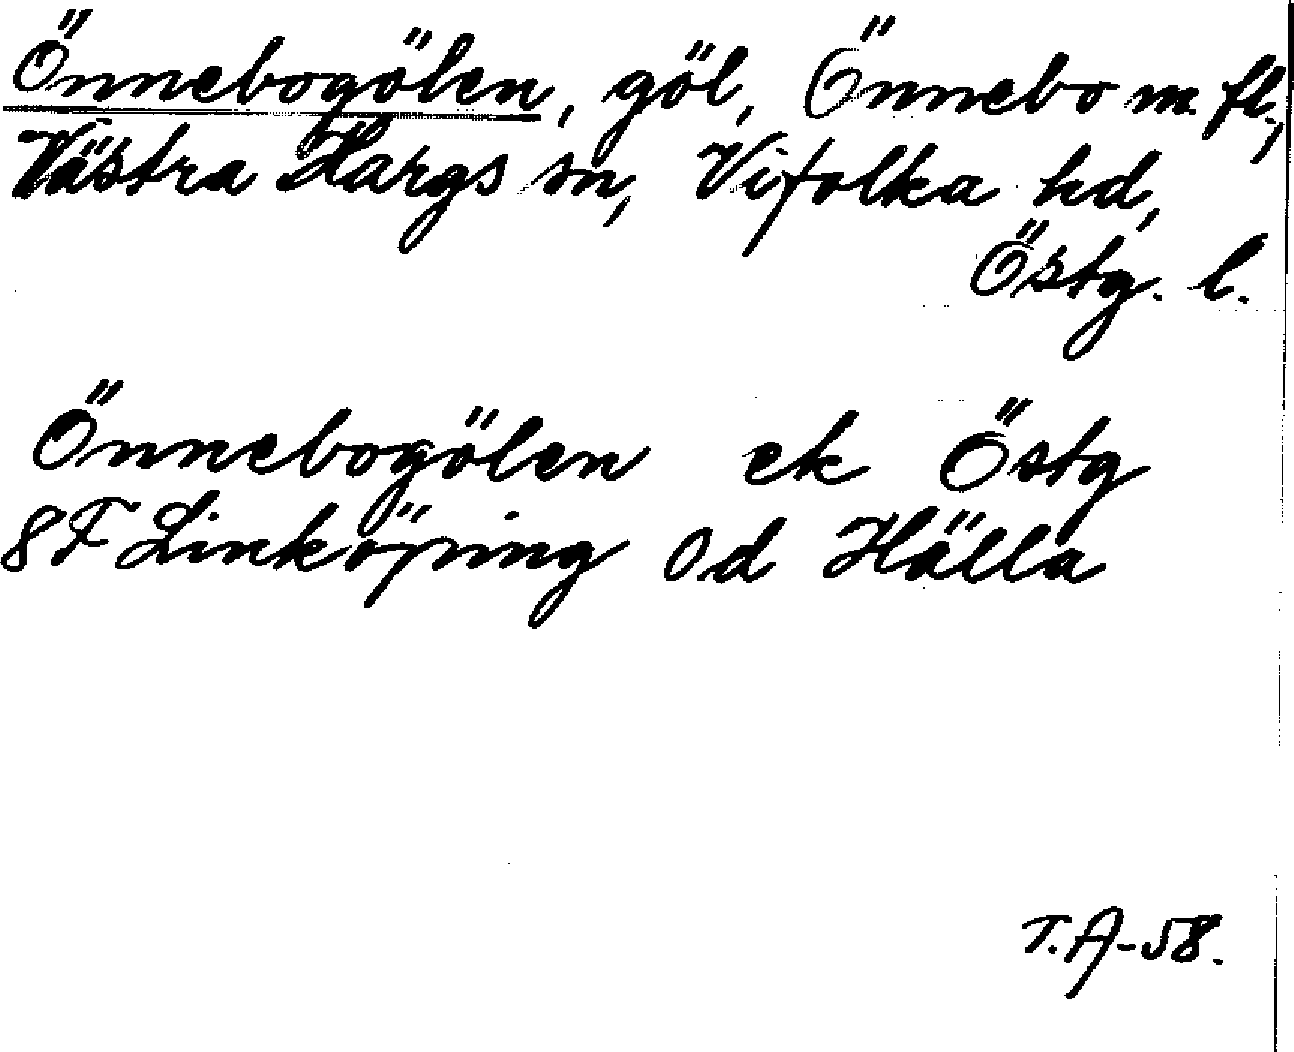 Önnebogölen, göl, Önnebo m. fl.,
Västra Hargs sn, Vifolka hd,
Östg. l.
Önnebogölen ek Östg
8F Linköping Od Hålla
T.A-58.